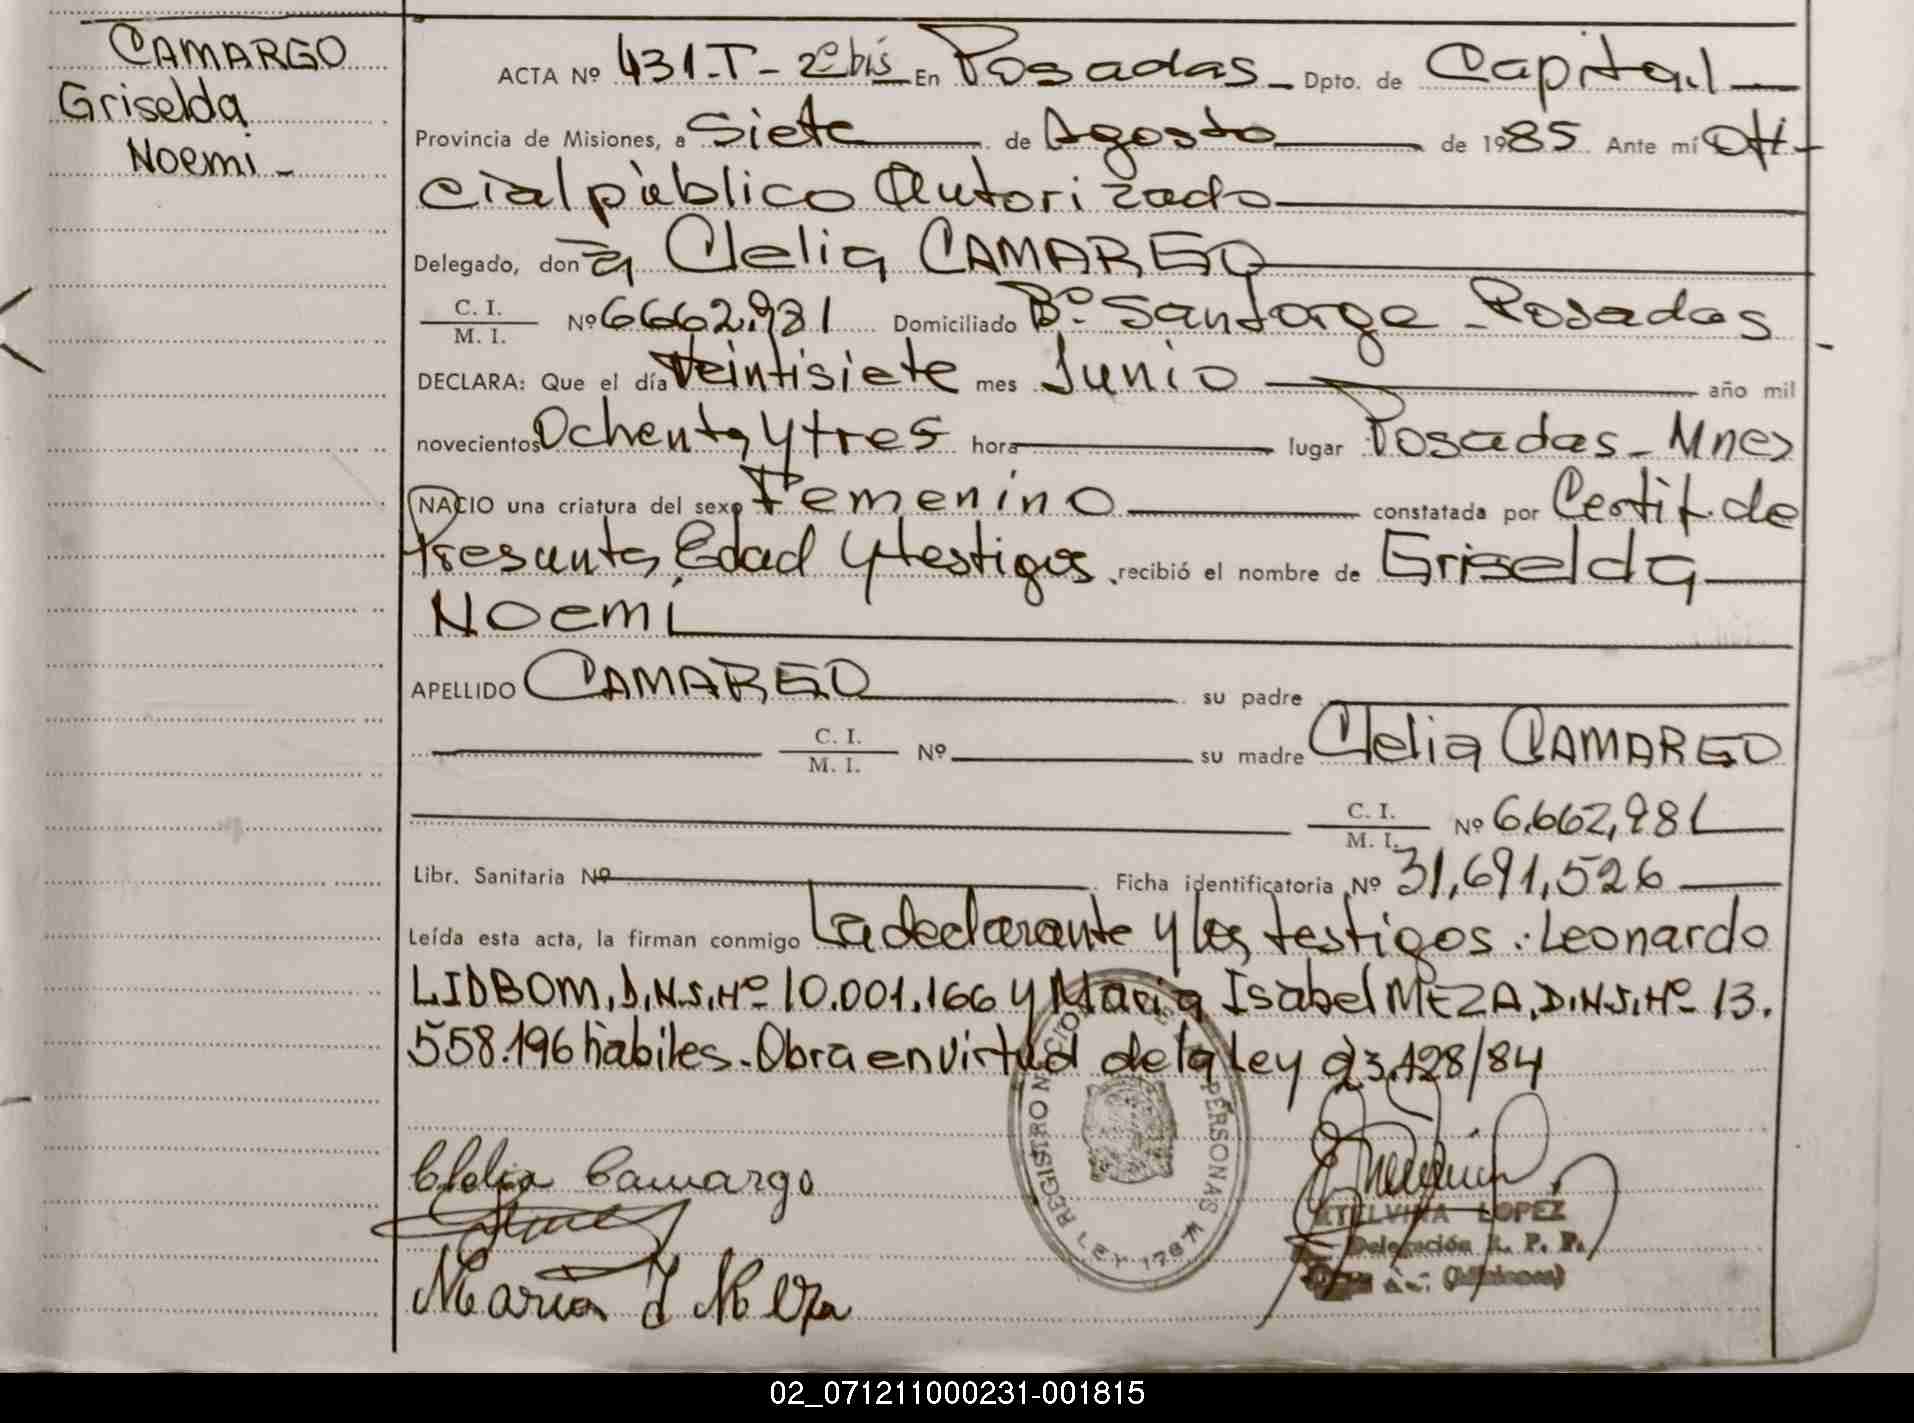 CAMARGO
Griselda
Noemi -
ACTA Nº 431-T- 2º bis En Posadas - Dpto. de Capital
Provincia de Misiones, a Siete de Agosto de 1985 Ante mí Ofi-
cial público Autorizado
Delegado, don a Clelia CAMARGO
C. I.
M. I. Nº 6662.981 Domiciliado Bº. San Jorge - Posadas -
DECLARA: Que el día Veintisiete mes Junio año mil
novecientos Ochenta y tres hora lugar Posadas - Mnes
NACIO una criatura del sexo Femenino constatada por Certif. de
Presunta Edad y testigos, recibió el nombre de Griselda
Noemi
APELLIDO CAMARGO su padre
C. I.
M. I. Nº su madre Clelia CAMARGO
C. I.
M. I. Nº 6.662,981
Libr. Sanitaria Nº Ficha identificatoria Nº 31,691,526
Leída esta acta, la firman conmigo La declarante y los testigos: Leonardo
LIDBOM, D.N.I. Nº 10.001.166 y Maria Isabel MEZA, D.N.I. Nº 13.
558.196 hábiles. Obra en virtud de la Ley 23.128/84
Clelia Camargo
Maria I Meza
REGISTRO NACIONAL DE PERSONAS
LEY 17671
ETELVINA LOPEZ
Delegación R. P. P.
(Misiones)
02_071211000231-001815